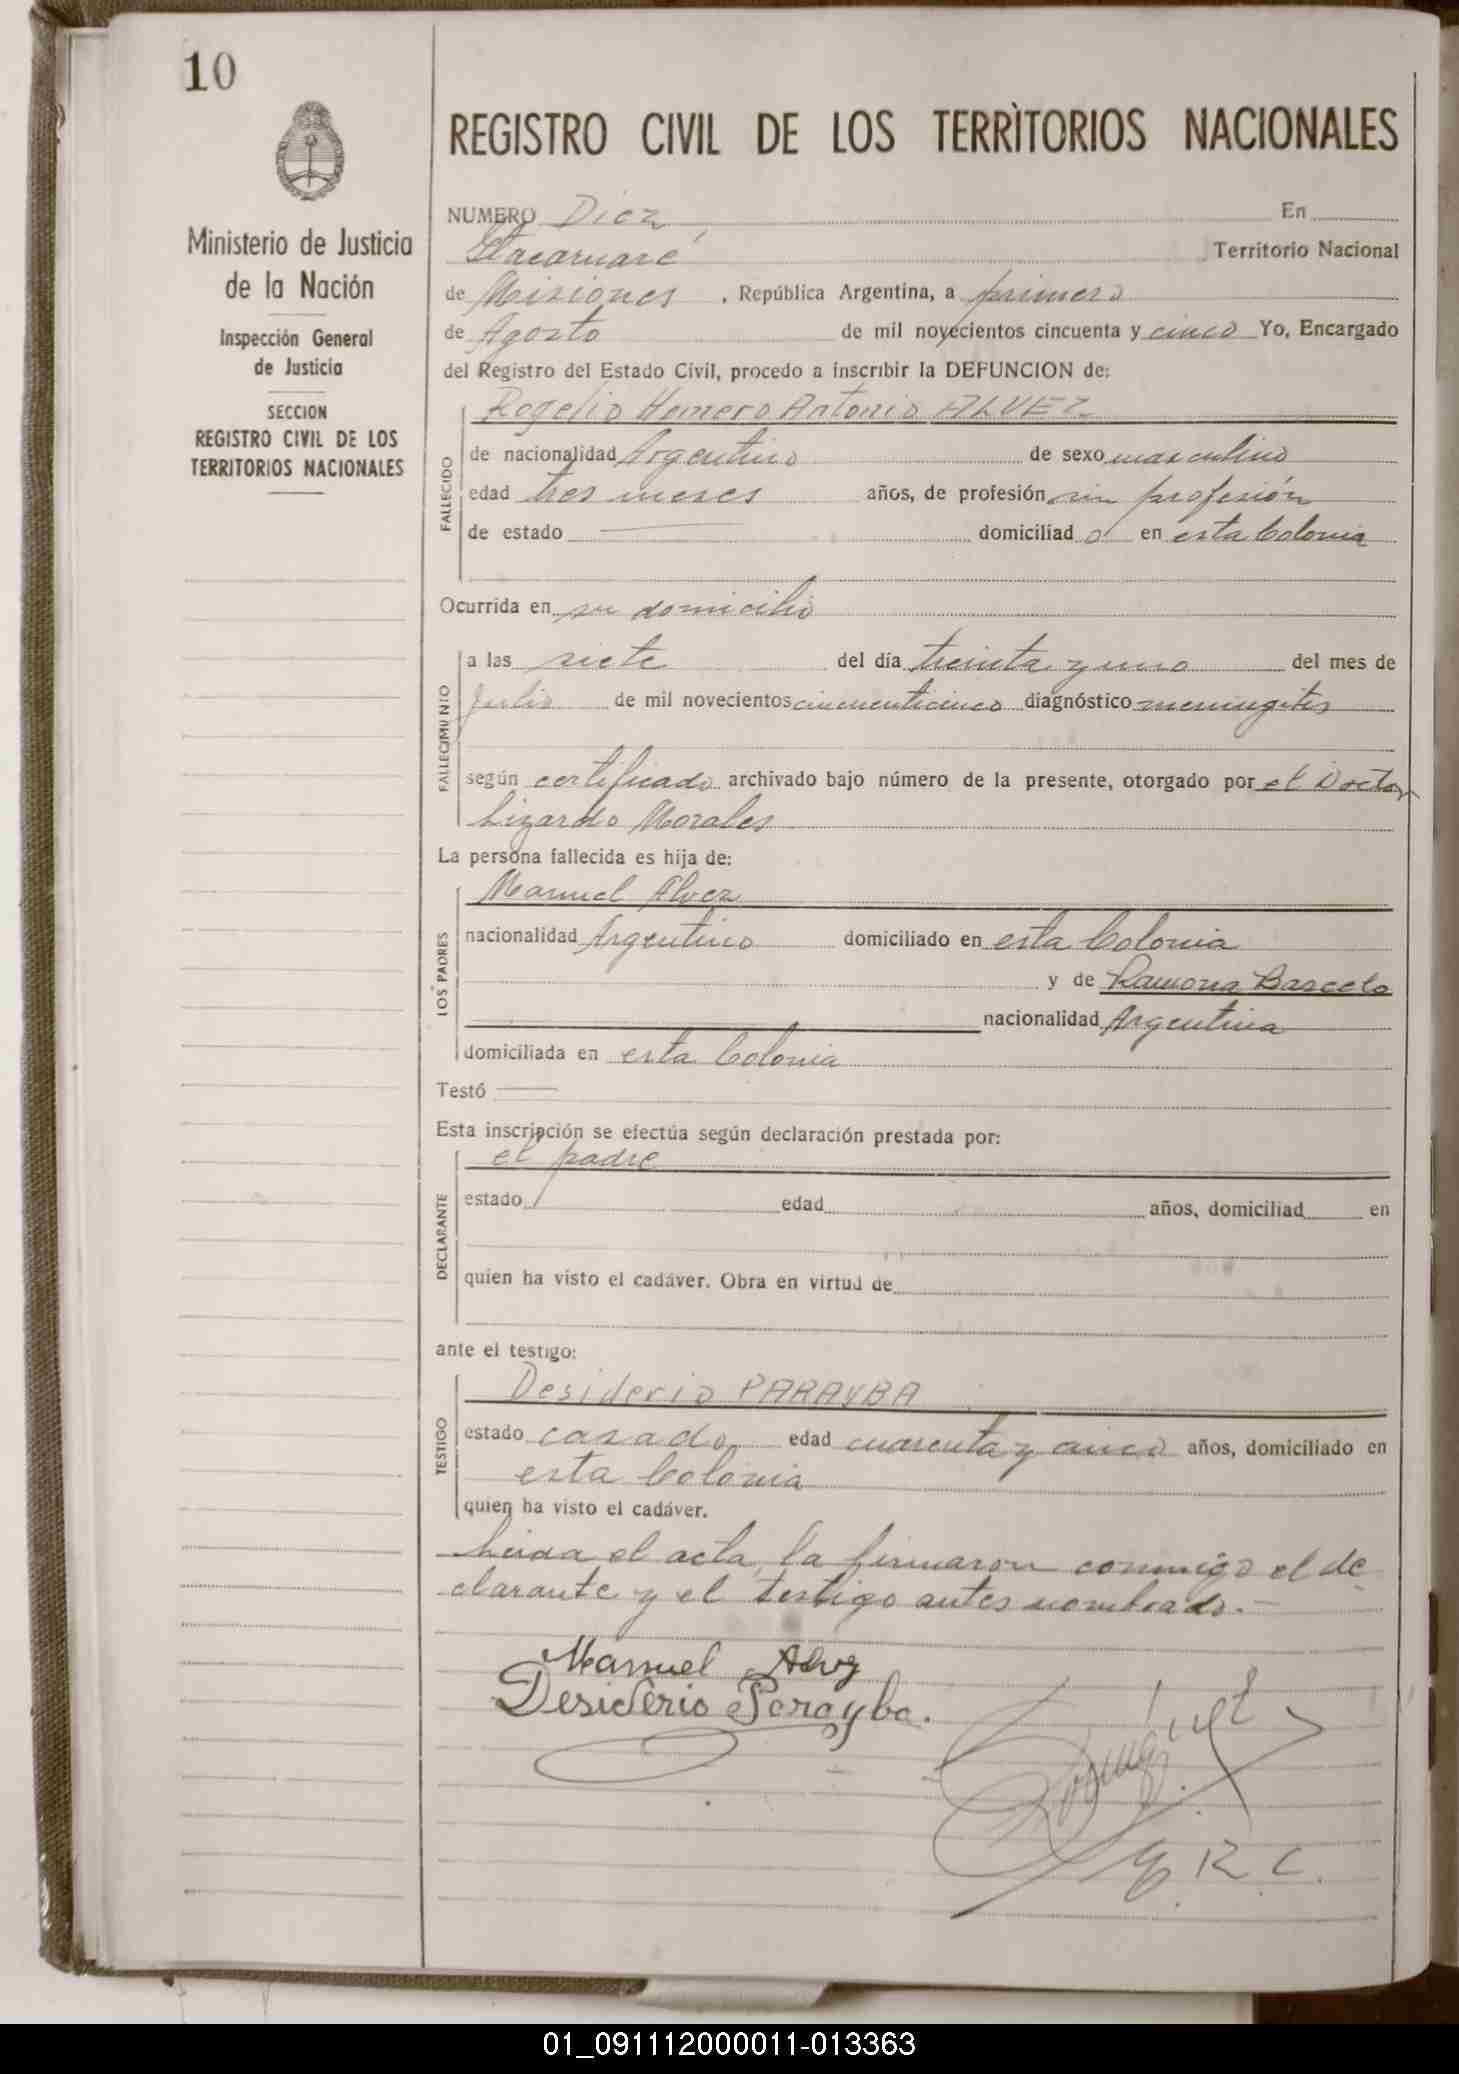 10
REGISTRO CIVIL DE LOS TERRÌTORIOS NACIONALES
Ministerio de Justicia
de la Nación
Inspección General
de Justicia
SECCION
REGISTRO CIVIL DE LOS
TERRITORIOS NACIONALES
NUMERO Diez, En
Itacaruaré Territorio Nacional
de Misiones, República Argentina, a primero
de Agosto de mil novecientos cincuenta y cinco Yo, Encargado
del Registro del Estado Civil, procedo a inscribir la DEFUNCION de:
Rogelio Homero Antonio ALVEZ
FALLECIDO
de nacionalidad Argentino de sexo masculino
edad tres meses años, de profesión sin profesión
de estado domiciliado en esta Colonia
Ocurrida en su domicilio
FALLECIMIENTO
a las siete del día treinta y uno del mes de
Julio de mil novecientos cincuenticinco diagnóstico meningitis
según certificado archivado bajo número de la presente, otorgado por el Doctor
Lizardo Morales
La persona fallecida es hija de:
LOS PADRES
Manuel Alvez
nacionalidad Argentino domiciliado en esta Colonia
y de Ramona Barcelo
nacionalidad Argentina
domiciliada en esta Colonia
Testó
Esta inscripción se efectúa según declaración prestada por:
DECLARANTE
el padre
estado edad años, domiciliad en
quien ha visto el cadáver. Obra en virtud de
ante el testigo:
TESTIGO
Desiderio PARAYBA
estado casado edad cuarenta y cinco años, domiciliado en
esta Colonia
quien ha visto el cadáver.
Leida el acta, la firmaron conmigo el de
clarante y el testigo antes nombrado.-
Manuel Alvez
Desiderio Parayba.
E. R. C.
01_091112000011-013363